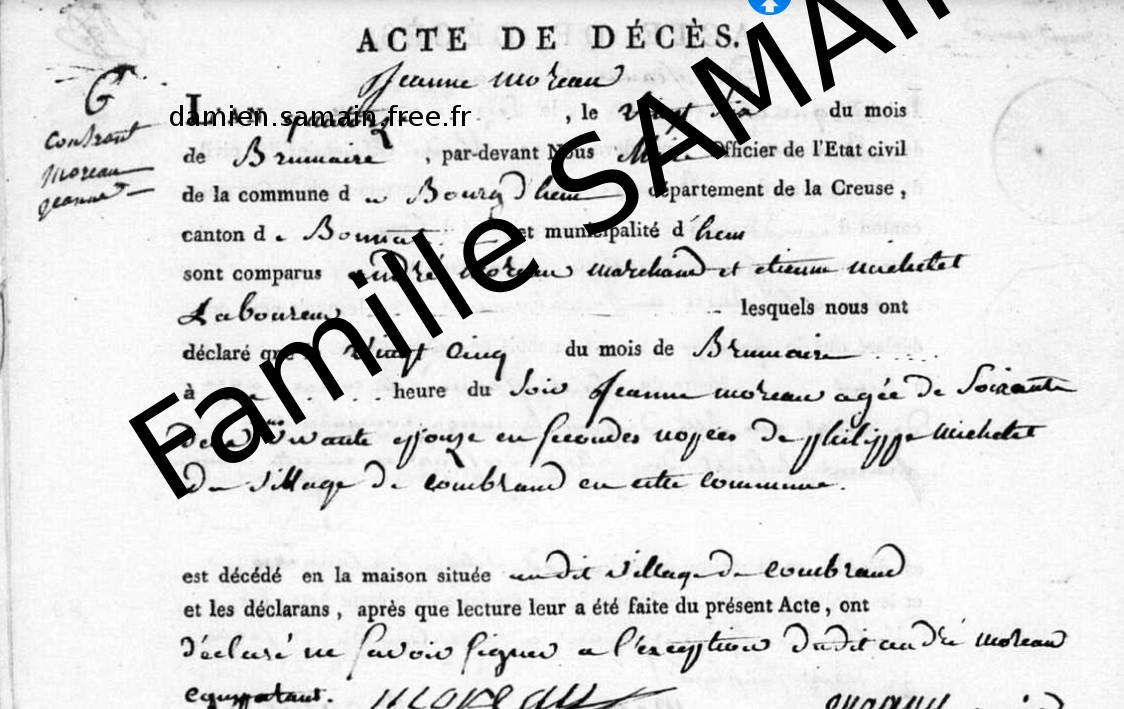 ACTE DE DÉCÈS.
Jeanne Moreau
L'AN quatorze, le Vingt Six du mois
damien.samain.free.fr
G
Contrant
Moreau
jeanne
de Brumaire, par-devant Nous Maire Officier de l'Etat civil
de la commune d u Bourg d'hem département de la Creuse,
canton d e Bonnat et municipalité d'hem
sont comparus andré Moreau Marchand et etienne Michelet
Laboureur lesquels nous ont
déclaré que Vingt Cinq du mois de Brumaire
à heure du Soir Jeanne moreau agée de Soixante
Vivante epouze en secondes nopces de philippe Michelet
Du Village de Combrand en cette commune.
est décédé en la maison située au dit Village de Combrand
et les déclarans, après que lecture leur a été faite du présent Acte, ont
déclaré ne Savoir Signer a l'exception dudit andré Moreau
Moreau
Famille SAMAIN